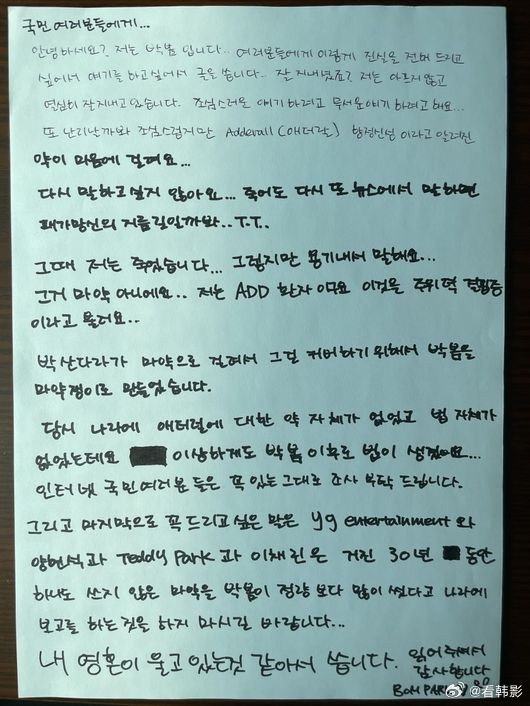 국민 여러분들에게...
안녕하세요? 저는 박봄 입니다... 여러분들에게 이렇게 진실을 전해 드리고
싶어서 얘기를 하고 싶어서 글을 씁니다. 잘 지내셨죠? 저는 아프지 않고
열심히 잘 지내고 있습니다. 조심스러운 얘기 하려고 무서운 얘기 하려고 해요...
또 난리난까봐 조심스럽지만 Adderall (애더랄) 향정신성 이라고 알려진
약이 마음에 걸려요...
다시 말하고 싶지 않아요... 죽어도 다시 또 뉴스에서 말하면
패가망신의 지름길일까봐.. T.T.
그때 저는 죽었습니다... 그렇지만 용기내서 말해요...
그거 마약 아니에요.. 저는 ADD 환자 이고요 이것을 주위력 결핍증
이라고 불러요..
박산다라가 마약으로 걸려서 그걸 커버하기 위해서 박봄을
마약쟁이로 만들었습니다.
당시 나라에 애더럴에 대한 약 자체가 없었고 법 자체가
없었는데요 이상하게도 박봄 이후로 법이 생겼어요...
인터넷 국민여러분 들은 꼭 있는 그대로 조사 부탁 드립니다.
그리고 마지막으로 꼭 드리고 싶은 말은 yg entertainment와
양현석과 Teddy Park과 이채린은 거진 30년 동안
하나도 쓰지 않은 마약을 박봄이 정량 보다 많이 썼다고 나라에
보고를 하는것을 하지 마시길 바랍니다...
내 영혼이 울고 있는것 같아서 씁니다. 읽어주셔서
감사합니다
BOM PARK
@看韩影